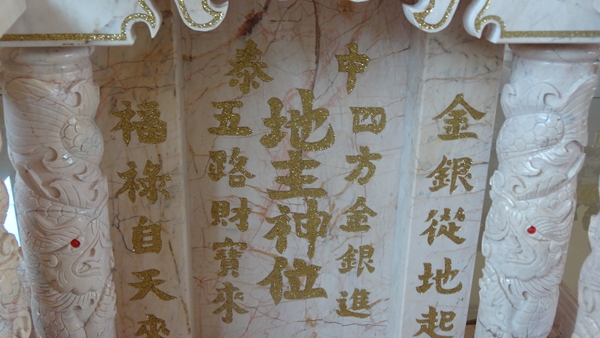 金銀從地起
中
四方金銀進
地主神位
泰
五路財寶來
福祿自天來